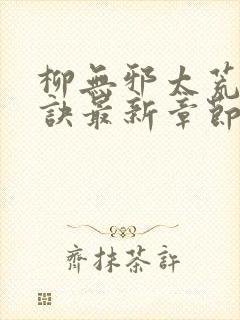 柳無邪太荒
訣最新章節
齊抹茶許